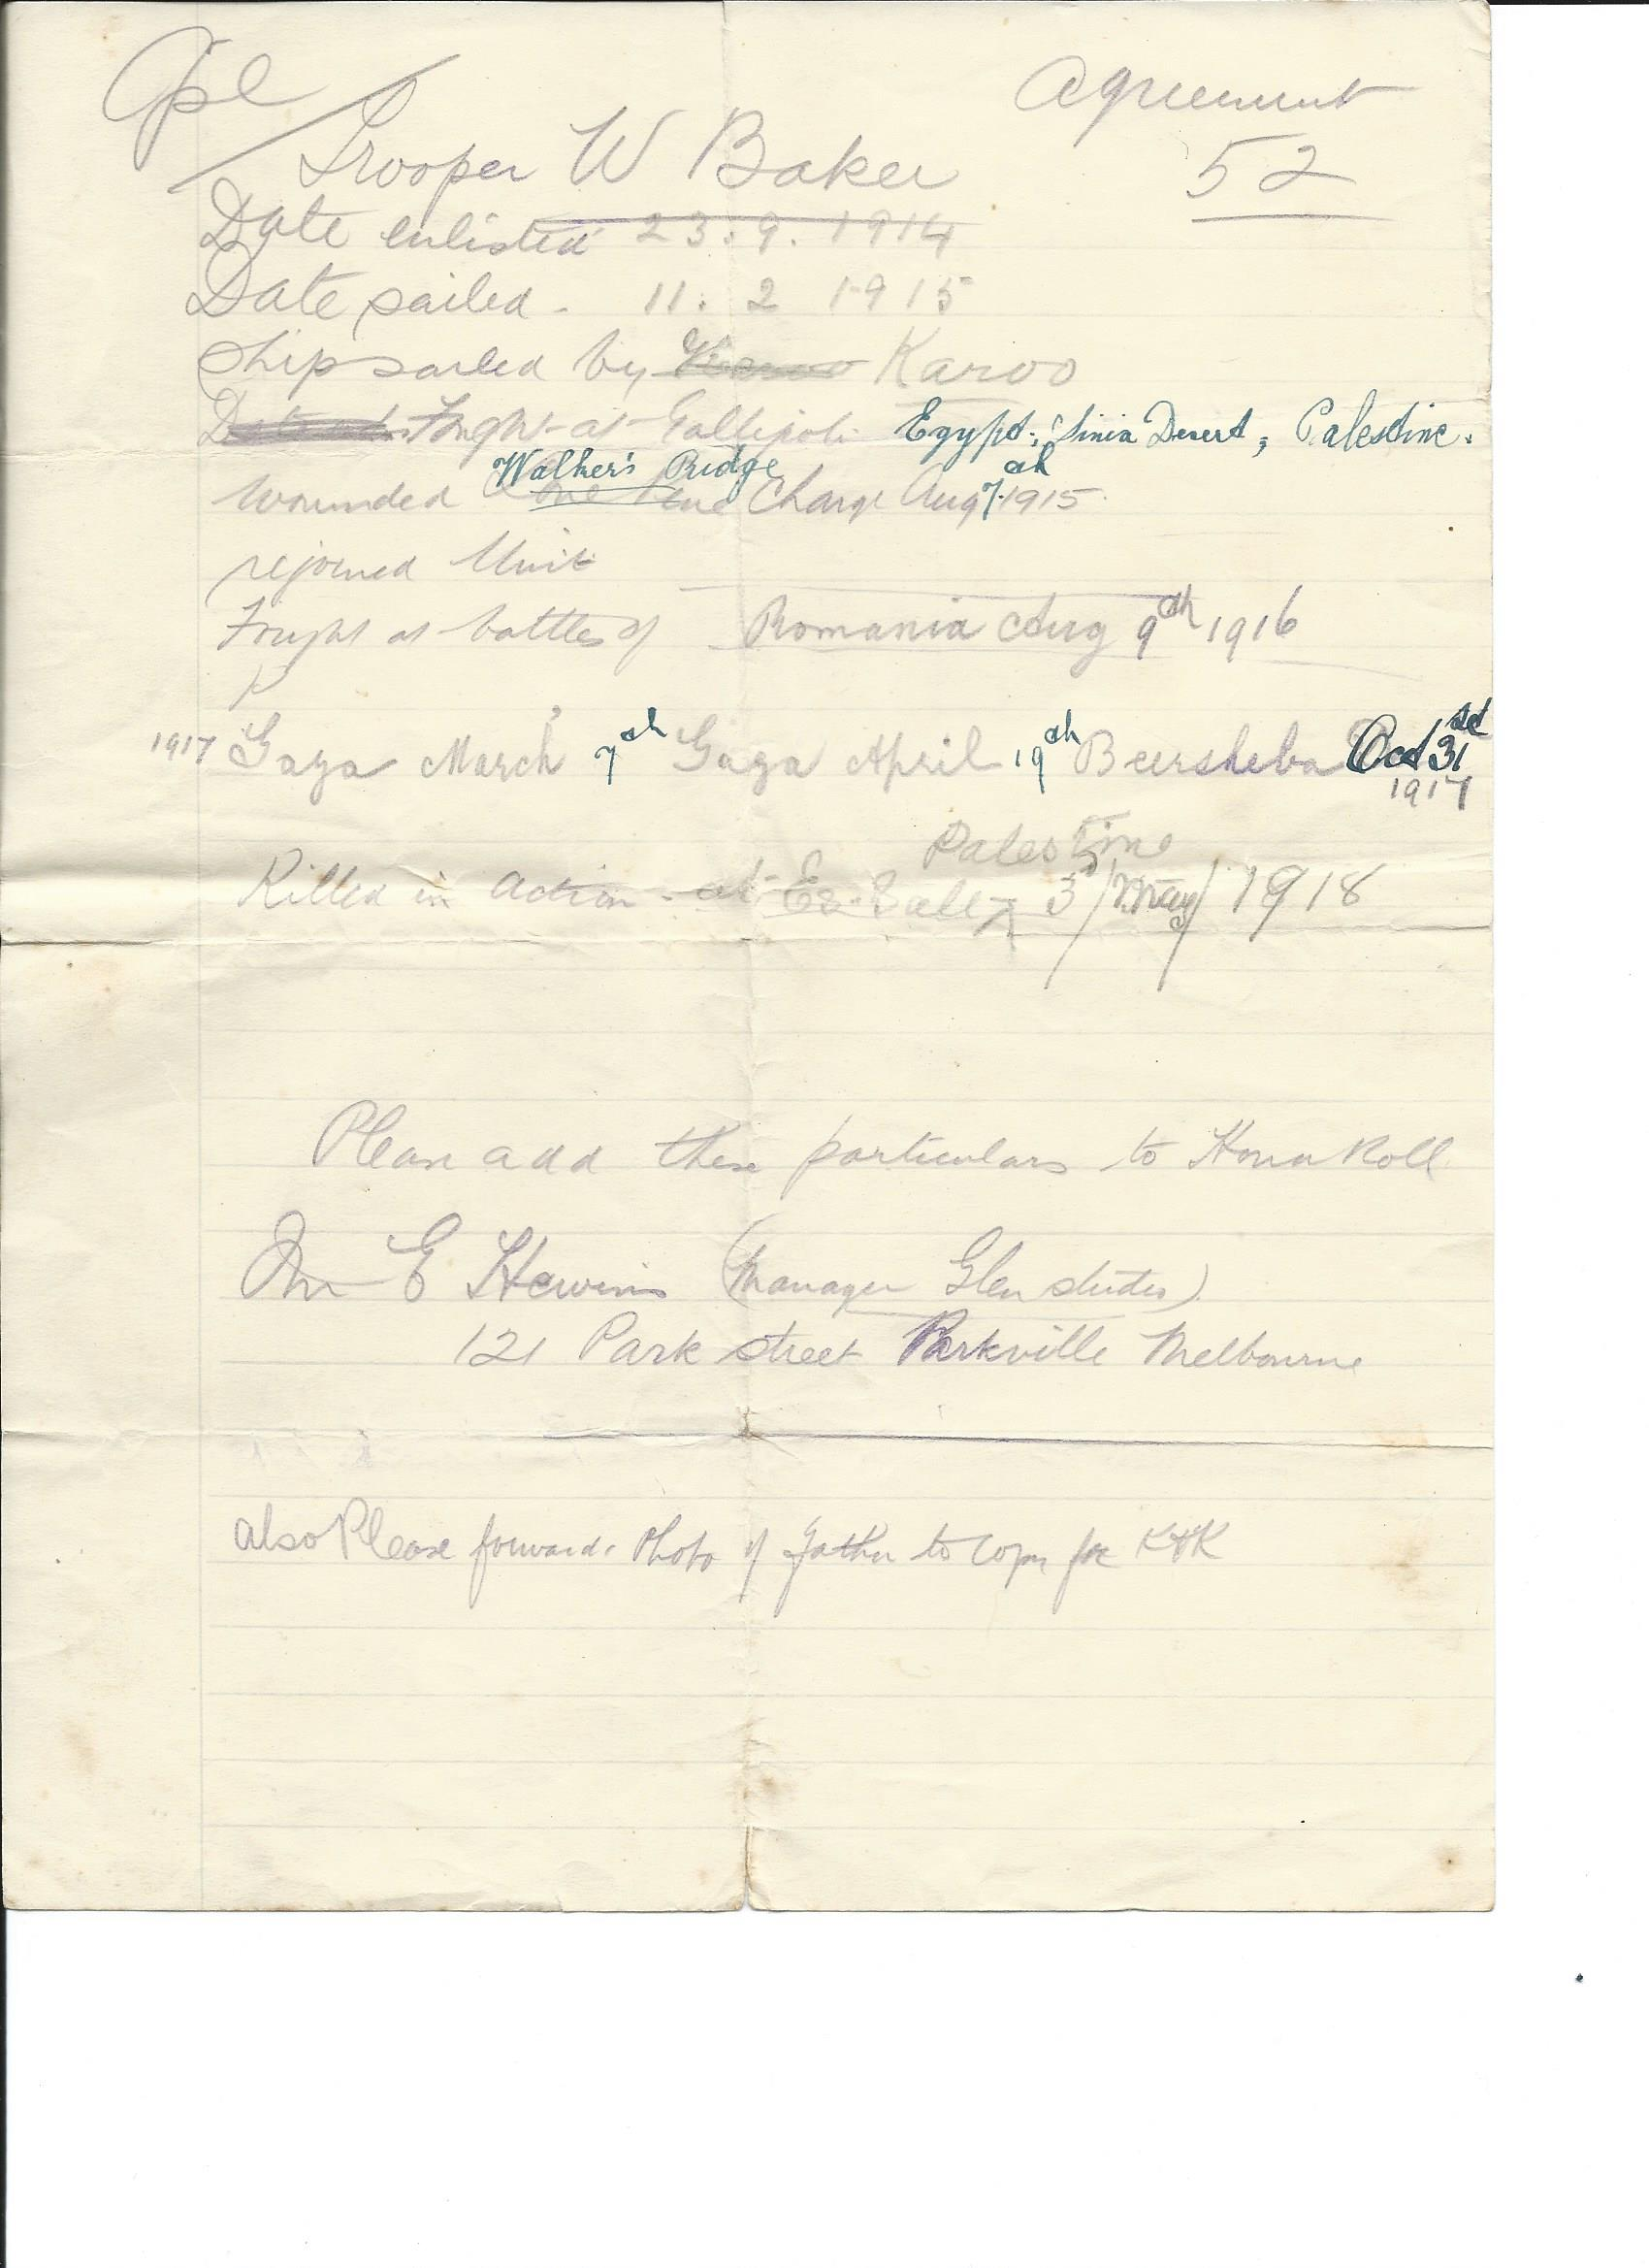 Cpl / Agreement
Trooper W Baker 52
Date enlisted 23.9.1914
Date sailed - 11. 2 1915
Ship sailed by Karoo
Fought at Gallipoli Egypt, Sinia Desert, Palestine.
Walker's Ridge th
Wounded Lone Pine Charge Aug 7. 1915.
rejoined Unit
Fought at battles of Romania Aug 9th 1916
1917 Gaza March 7th Gaza April 19th Beersheba Oct 31st
1917
Palestine
Killed in action - at Es-Salt 3/May/1918
Please add these particulars to Honor Roll
Mr E (Manager Glen
121 Park street Parkville Melbourne
also Please forward Photo of father to copy for